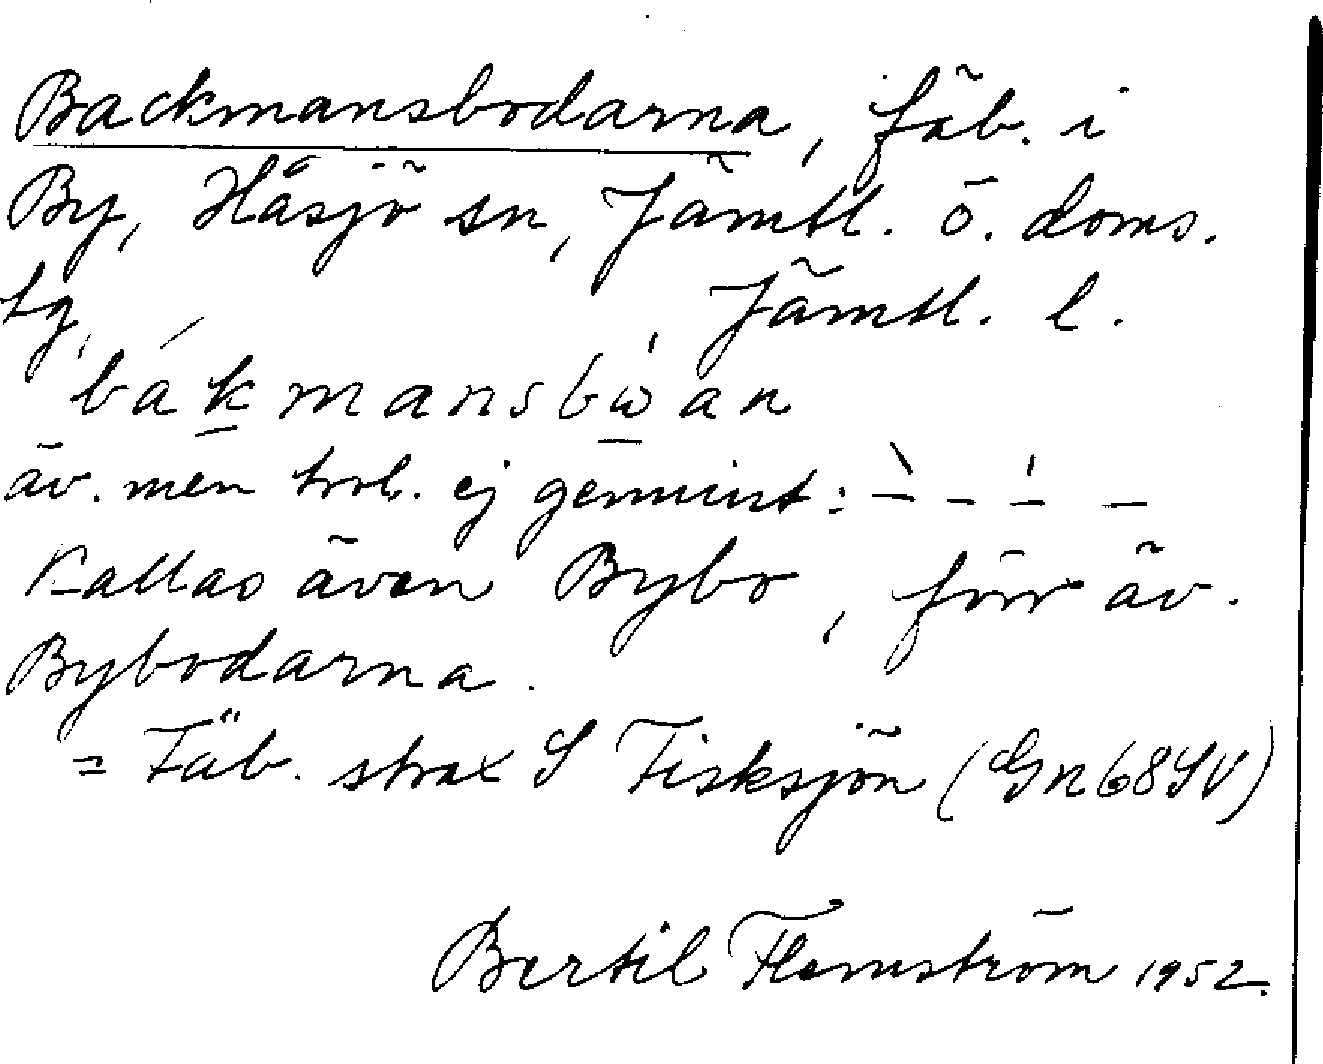 Backmansbodarna, fäb. i
By, Håsjö sn, Jämtl. ö. doms.
tg, Jämtl. l.
bakmansbωan
äv. men trol. ej genuint: ` – ' –
Kallas även Bybo, förr äv.
Bybodarna.
= Fäb. strax S Fisksjön (Gn 68SV)
Bertil Flemström 1952.